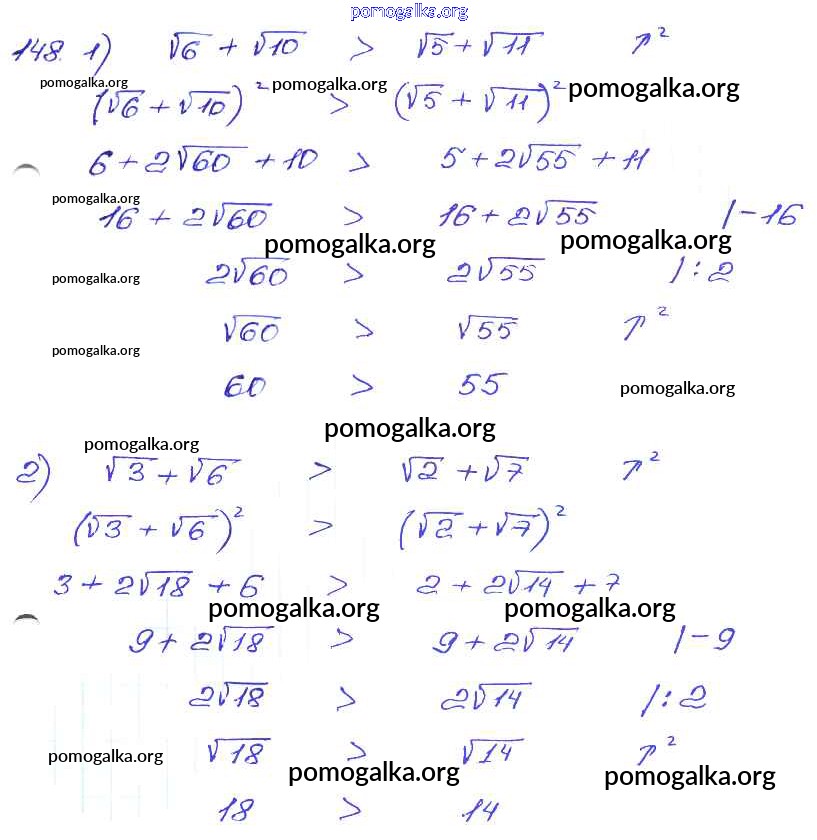 pomogalka.org
148. 1) √6 + √10 > √5 + √11 ↑²
pomogalka.org pomogalka.org pomogalka.org
(√6 + √10)² > (√5 + √11)²
6 + 2√60 + 10 > 5 + 2√55 + 11
pomogalka.org
16 + 2√60 > 16 + 2√55 /-16
pomogalka.org pomogalka.org
2√60 > 2√55 /:2
pomogalka.org
√60 > √55 ↑²
pomogalka.org
60 > 55
pomogalka.org
pomogalka.org
pomogalka.org
2) √3 + √6 > √2 + √7 ↑²
(√3 + √6)² > (√2 + √7)²
3 + 2√18 + 6 > 2 + 2√14 + 7
pomogalka.org pomogalka.org
9 + 2√18 > 9 + 2√14 /-9
2√18 > 2√14 /:2
√18 > √14 ↑²
pomogalka.org pomogalka.org pomogalka.org
18 > 14